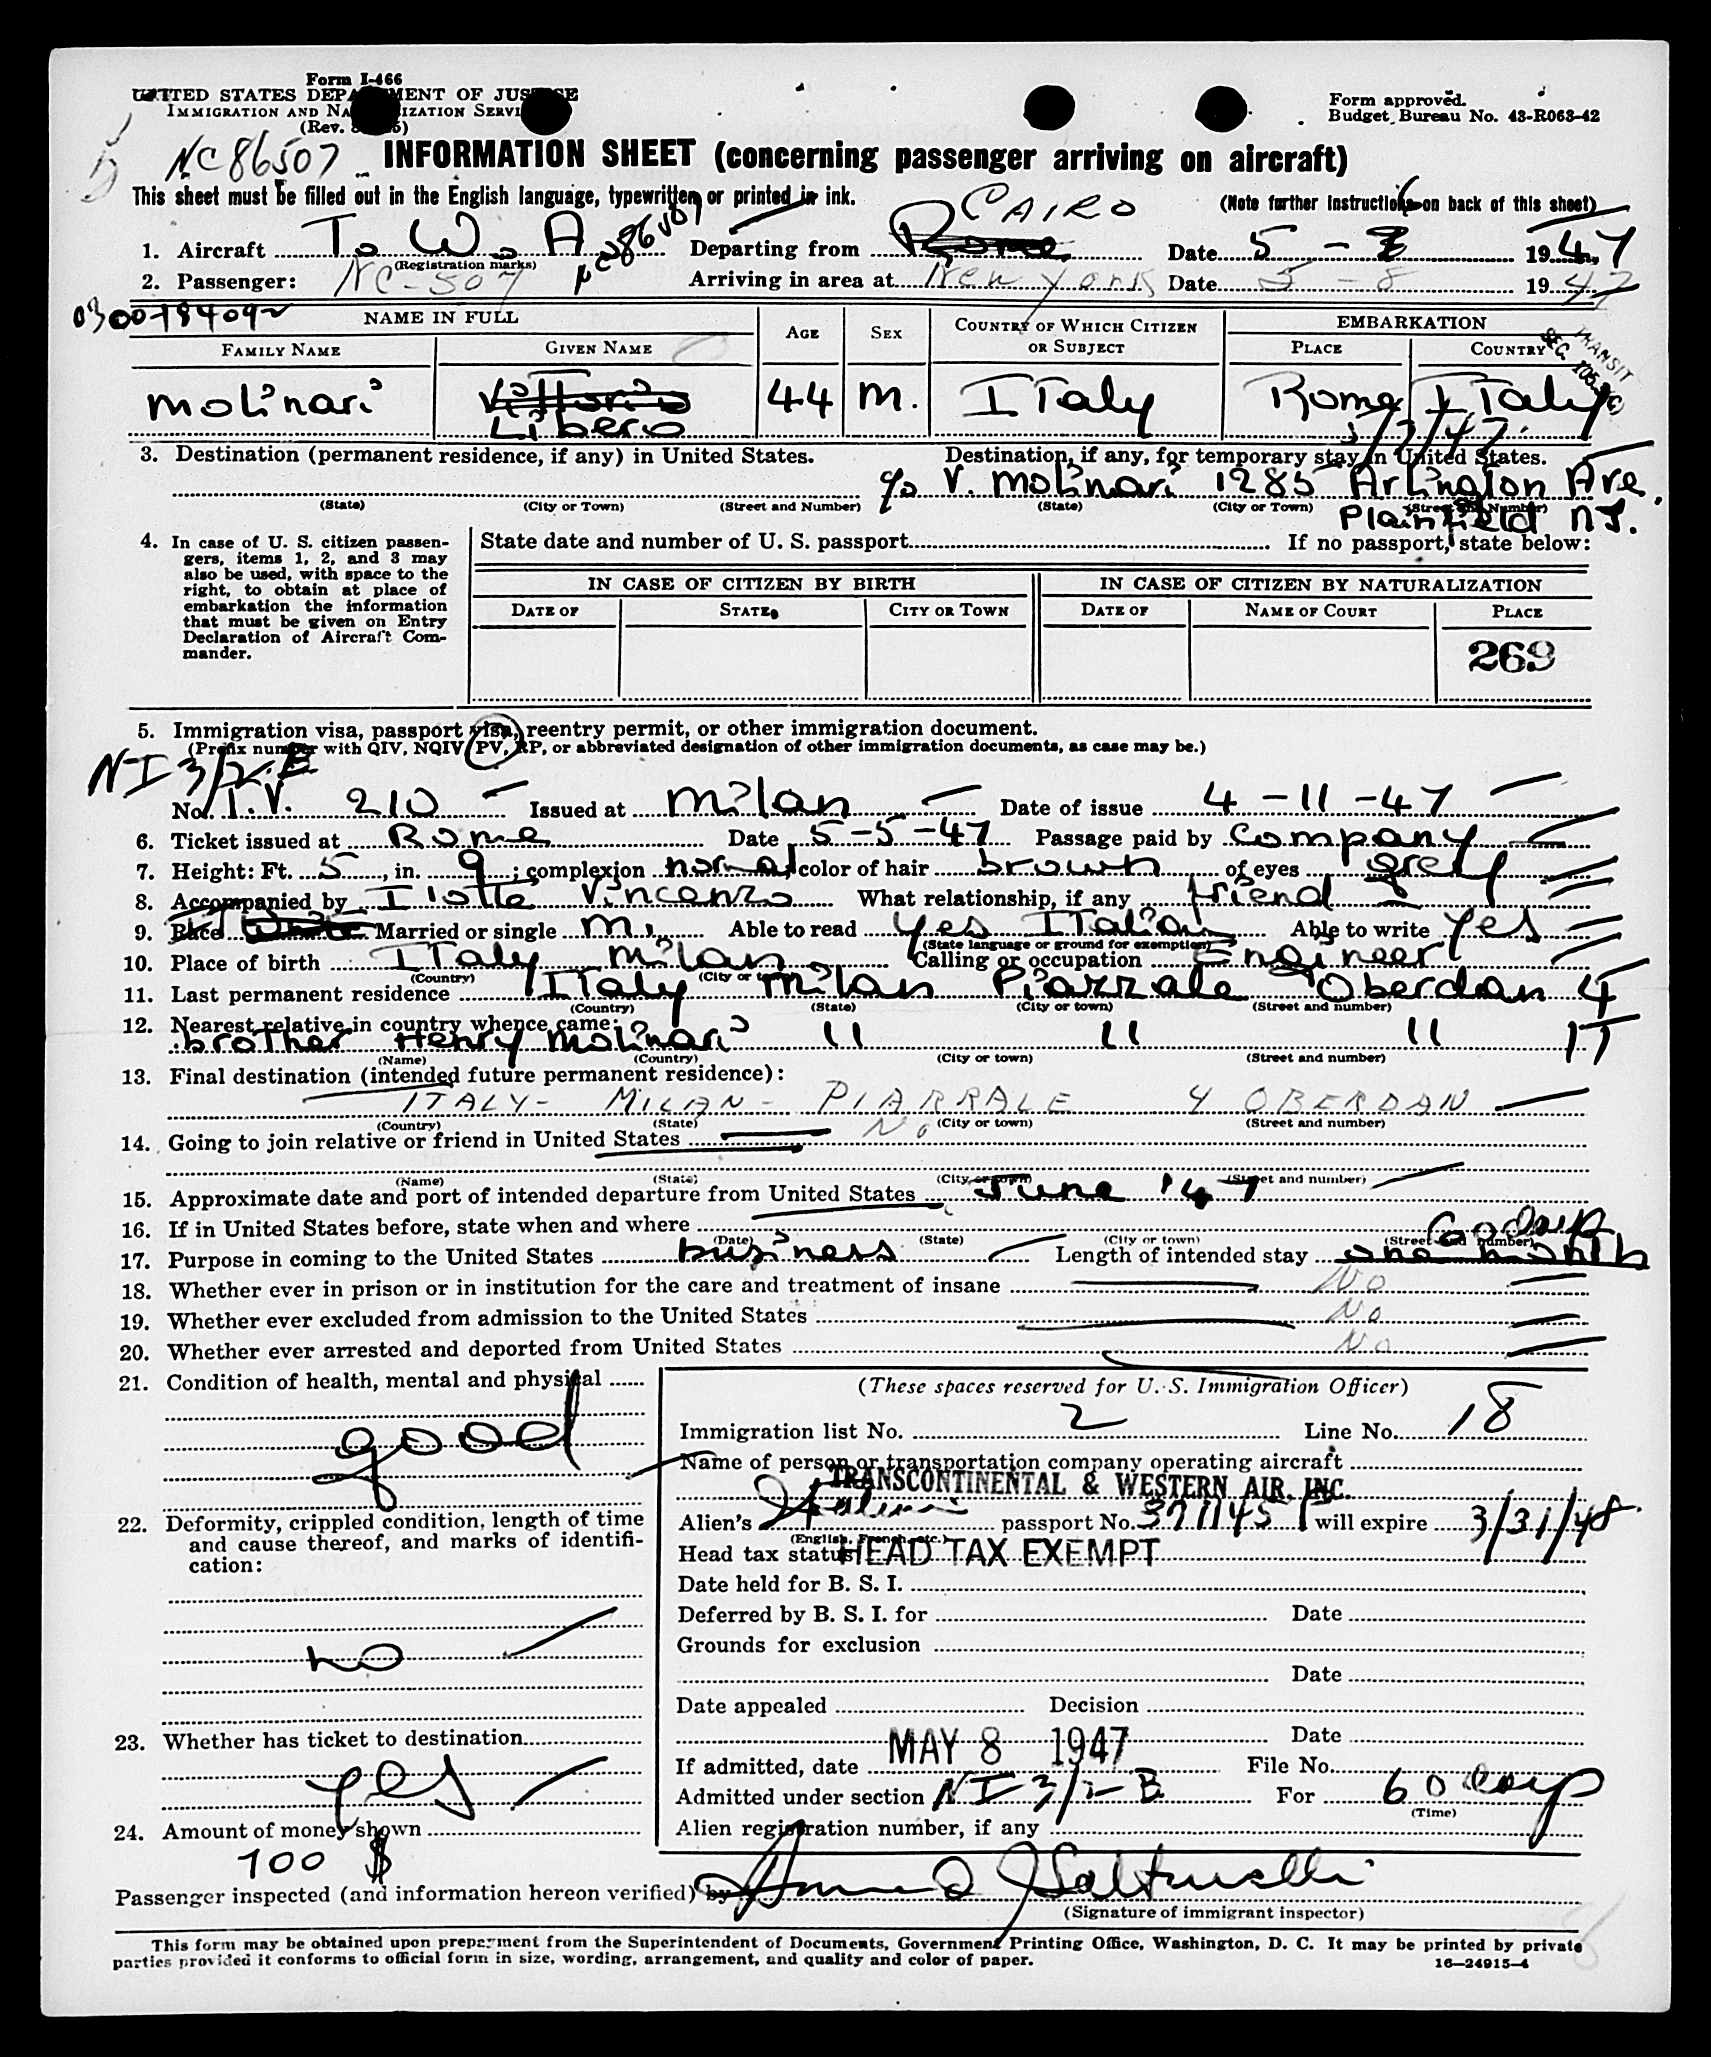 Form I-466
UNITED STATES DEPARTMENT OF JUSTICE
IMMIGRATION AND NATURALIZATION SERVICE
(Rev.
Form approved.
Budget Bureau No. 43-R063-42
NC86507
INFORMATION SHEET (concerning passenger arriving on aircraft)
This sheet must be filled out in the English language, typewritten or printed in ink.
(Note further instructions on back of this sheet)
1. Aircraft T. W. A NC86507 Departing from Rome CAIRO Date 5 - 7 1947
(Registration marks)
2. Passenger: NC-507 Arriving in area at New York Date 5 - 8 1947
0300-78409
NAME IN FULL AGE SEX COUNTRY OF WHICH CITIZEN OR SUBJECT EMBARKATION
FAMILY NAME GIVEN NAME PLACE COUNTRY
TRANSIT
SEC.
Molinari Vittorio 44 M. ITaly Rome ITaly
Libero
5/7/47.
3. Destination (permanent residence, if any) in United States. Destination, if any, for temporary stay in United States.
c/o V. Molinari 1285 Arlington Ave.
(State) (City or Town) (Street and Number) (State) (City or Town) (Street and Number)
Plainfield NJ.
4. In case of U. S. citizen passengers, items 1, 2, and 3 may also be used, with space to the right, to obtain at place of embarkation the information that must be given on Entry Declaration of Aircraft Commander.
State date and number of U. S. passport If no passport, state below:
IN CASE OF CITIZEN BY BIRTH IN CASE OF CITIZEN BY NATURALIZATION
DATE OF STATE CITY OR TOWN DATE OF NAME OF COURT PLACE
269
5. Immigration visa, passport visa, reentry permit, or other immigration document.
(Prefix number with QIV, NQIV, PV, RP, or abbreviated designation of other immigration documents, as case may be.)
NI 3/2-B
No. I.V. 210 Issued at Milan Date of issue 4 - 11 - 47
6. Ticket issued at Rome Date 5-5-47 Passage paid by Company
7. Height: Ft. 5, in. 9; complexion normal color of hair brown of eyes grey
8. Accompanied by Ilotte Vincenzo What relationship, if any friend
9. Race White Married or single M. Able to read yes ITalian Able to write yes
(State language or ground for exemption)
10. Place of birth ITaly Milan Calling or occupation Engineer
(Country) (City or town)
11. Last permanent residence ITaly Milan Piazzale Oberdan 4
(Country) (State) (City or town) (Street and number)
12. Nearest relative in country whence came:
brother Henry Molinari 11 11 11 11
(Name) (Country) (City or town) (Street and number)
13. Final destination (intended future permanent residence):
ITALY - MILAN - PIARRALE 4 OBERDAN
(Country) (State) (City or town) (Street and number)
14. Going to join relative or friend in United States No
(Name) (State) (City or town) (Street and number)
15. Approximate date and port of intended departure from United States June '47
16. If in United States before, state when and where
(Date) (State) (City or town) (Street and number)
60 days
17. Purpose in coming to the United States business Length of intended stay one month
18. Whether ever in prison or in institution for the care and treatment of insane No
19. Whether ever excluded from admission to the United States No
20. Whether ever arrested and deported from United States No
21. Condition of health, mental and physical
good
22. Deformity, crippled condition, length of time and cause thereof, and marks of identification:
no
23. Whether has ticket to destination
yes
24. Amount of money shown
700 $
(These spaces reserved for U. S. Immigration Officer)
Immigration list No. 2 Line No. 18
Name of person or transportation company operating aircraft
TRANSCONTINENTAL & WESTERN AIR, INC.
Alien's Italian passport No. 371145 will expire 3/31/48.
(English, French, etc.)
Head tax status HEAD TAX EXEMPT
Date held for B. S. I.
Deferred by B. S. I. for Date
Grounds for exclusion
Date
Date appealed Decision
Date
If admitted, date MAY 8 1947 File No.
Admitted under section NI-3/2-B For 60 days
(Time)
Alien registration number, if any
Passenger inspected (and information hereon verified) by
(Signature of immigrant inspector)
This form may be obtained upon prepayment from the Superintendent of Documents, Government Printing Office, Washington, D. C. It may be printed by private
parties provided it conforms to official form in size, wording, arrangement, and quality and color of paper.
16—24915-4